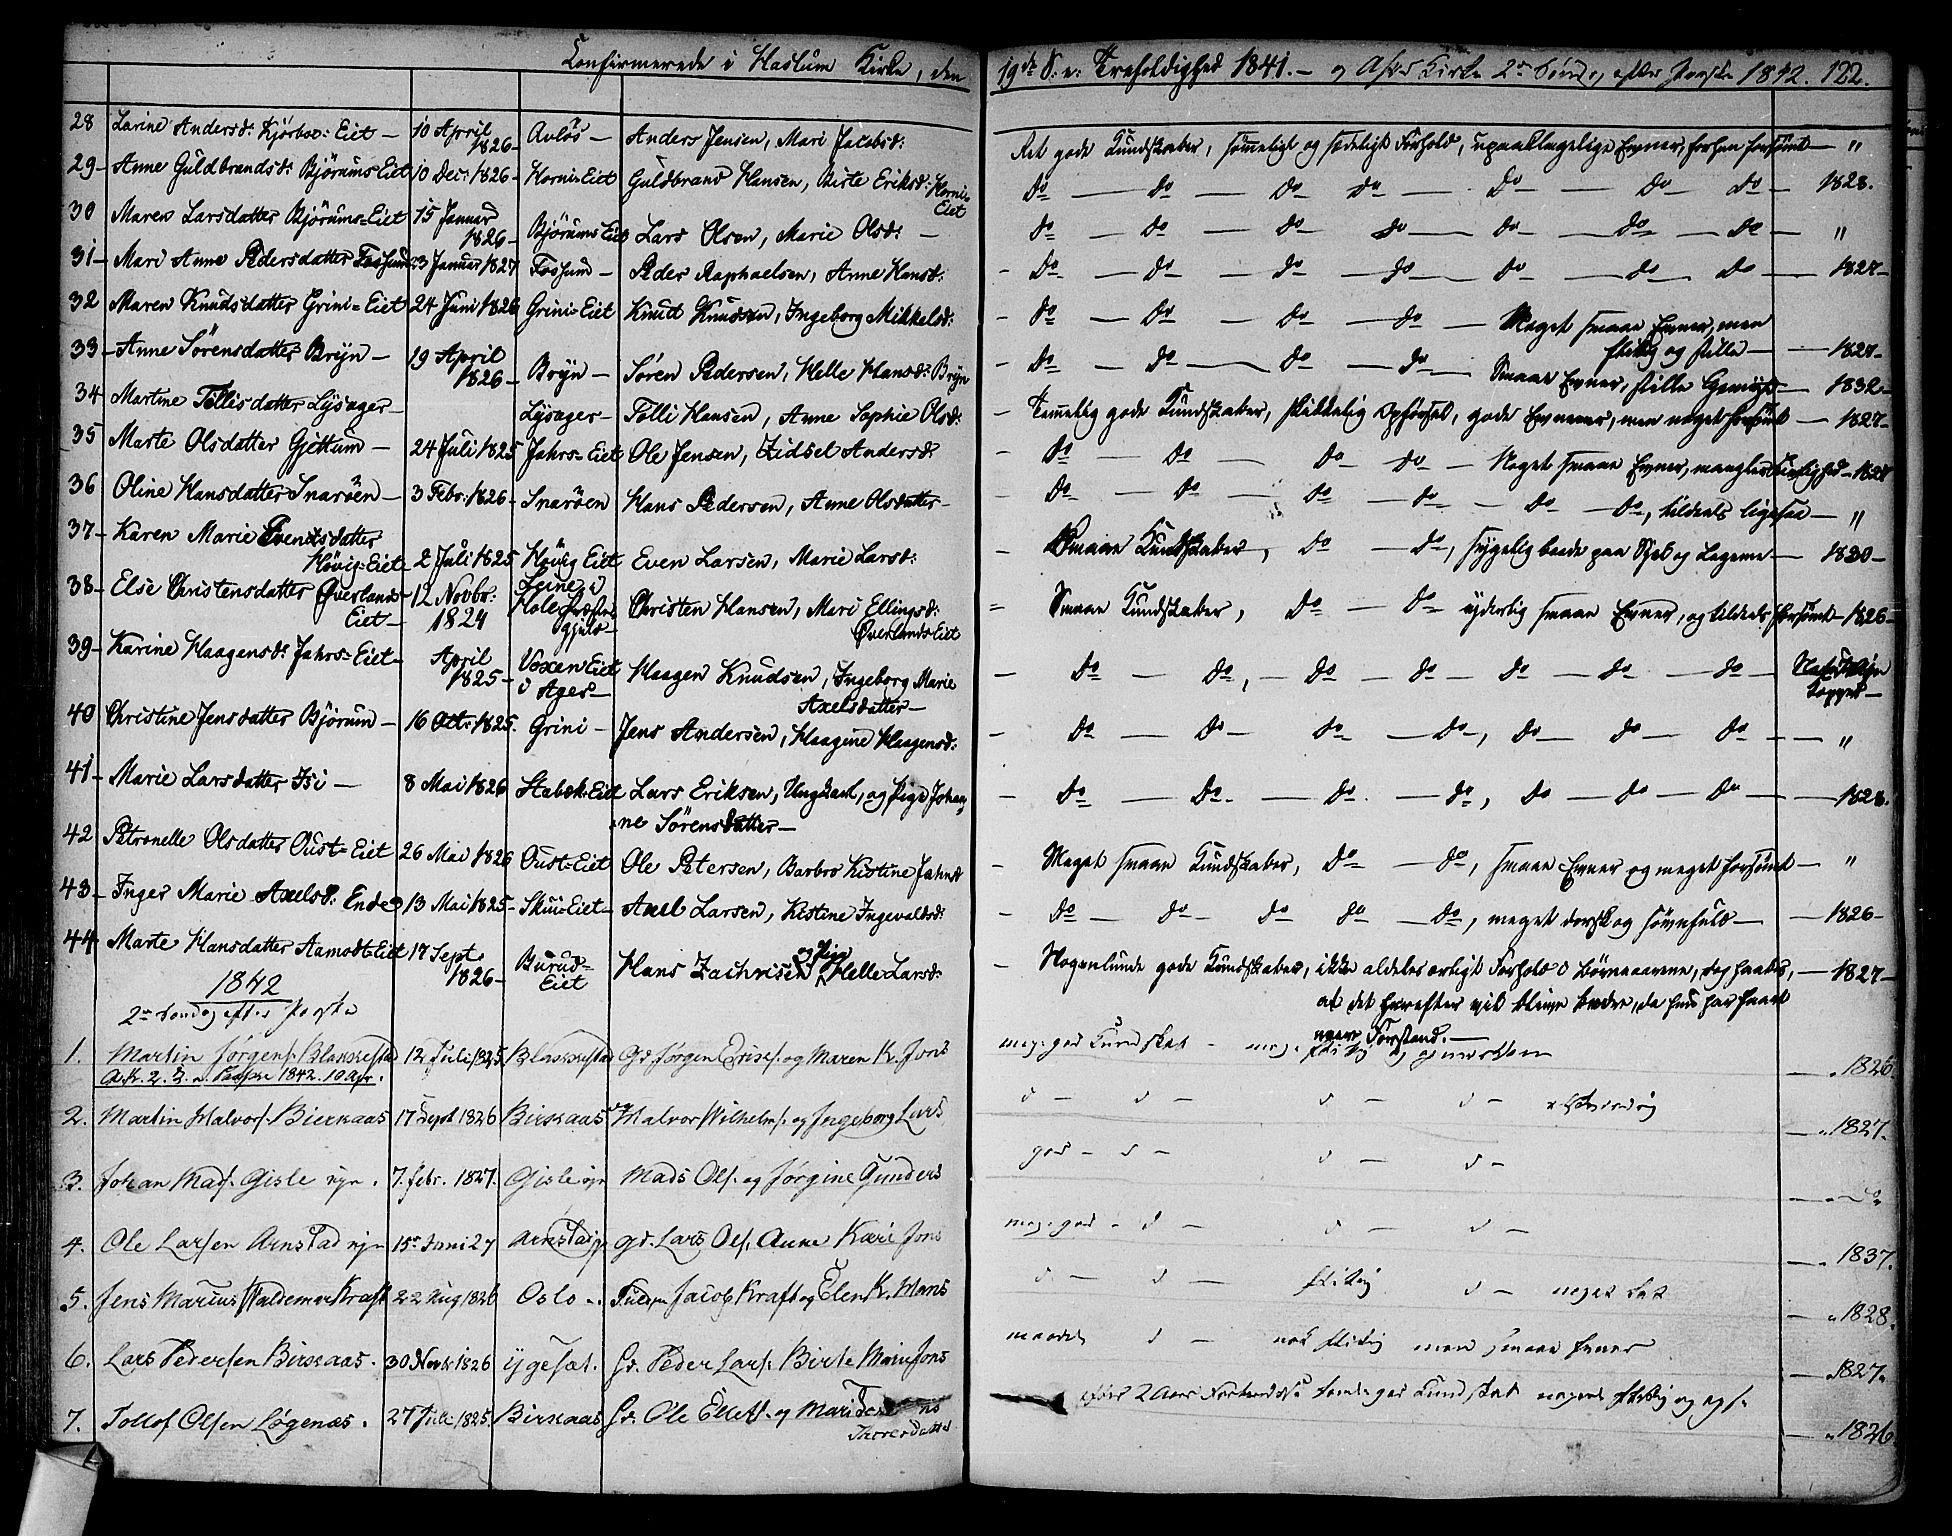 Confirmerede i Haslum Kirke, den 19de S. e. Trefoldighed 1841. – og Asker Kirke 2den Sønd. efter Paaske 1842. 122.
28 Larine Andersd: Kjörboe: Eiet – 10 April 1826– Avlös – Anders Jensen, Mari Jacobsd: Ret gode Kundskaber, sömmeligt og sædeligt Forhold, upaaklagelige Evner, forhen forsömt – "
29– Anne Guldbrandsd: Björums Eiet 10 Decr: 1826– Horni=Eiet Guldbrand Hansen, Birte Eriksd: Horni=Eiet Do – Do – Do Do – Do – Do Do – 1828.
30 Maren Larsdatter Bjørums=Eiet 15 Januar 1826– Bjørums Eiet Lars Olsen, Marie Olsd: – Do – Do – Do – Do – Do – Do – Do – "
31– Mari Anne Pedersdatter Fossum 23 Januar 1827 Fossum – Peder Raphaelsen, Anne Hansd: – Do – Do – Do – Do – Do – Do – Do – 1827–
32 Maren Knudsdatter Grini=Eiet 24 Juni 1826 Grini=Eiet Knud Knudsen, Ingeborg Mikkelsd: – Do – Do – Do – Do – Meget smaae Evner, men flittig og stille – 1827–
33– Anne Sörensdatter Bryn – 19 April 1826– Bryn – Sören Pedersen, Helle Hansd: Bryn – Do – Do – Do – Do – Smaae Evner, stille Gemyt – 1832–
34 Martine Tollisdatter Lysager – Lysager– Tolli Hansen, Anne Sophie Olsd: – Temmelig gode Kundskaber, skikkelig Opförsel, gode Evner, men noget forsömt – 1827–
35 Marte Olsdatter Gjettum – 24 Juli 1825 Jahrs=Eiet Ole Jensen, Zidsel Andersd: – Do – Do – Do – Do – Noget smaae Evner, mangler
36 Oline Hansdatter Snaröen – 3 Febr: 1826– Snaröen Hans Pedersen, Anne Olsdatter – – Do – Do – Do – Do – Do – Do, tildeels ligesaa – "
37– Karen Marie Evensdatter Hövig=Eiet– 2 Juli 1825 Hövig Eiet Even Larsen, Marie Larsd: – Smaae Kundskaber, Do – Do, sygelig baade paa Sjel og Legeme – 1830–
38– Else Christensdatter Øverlands Eiet – 12 Novbr: 1824 Leine i Hole Præstegjeld– Christen Hansen, Mari Ellingsd: Øverlands Eiet – Smaae Kundskaber, Do – Do yderlig smaae Evner, og tildeels forsömt – 1826–
39– Karine Haagensd: Jahrs=Eiet– April 1825– Voxen Eiet i Ager– Haagen Knudsen, Ingeborg Marie Axelsdatter – – Do – Do, – Do – Do – Do – Do – Do –
40 Christine Jensdatter Bjørum – 16 Octr: 1825. Grini – Jens Andersen, Haagine Haagensd: – Do – Do – Do – Do, Do – Do – Do – "
41– Marie Larsdatter Isi – 8 Mai 1826 Stabek=Eiet Lars Eriksen, Ungkarl, og Pige Johanne Sörensdatter – – Do – Do – Do – Do, Do – Do – Do – 1828.
42 Petronelle Olsdatter Oust=Eiet 26 Mai 1826 Oust=Eiet Ole Petersen, Barbro Kistine Jahnsd – Meget smaae Kundskaber, Do – Do, smaae Evner og meget forsömt – "
43– Inger Marie Axelsd: Ende 13 Mai 1825– Skui=Eiet– Axel Larsen, Kistine Ingevaldsd: – Do – Do – Do Do – Do, meget dorsk og sövnfuld – 1826–
44 Marte Hansdatter Aamodt=Eiet 17 Septr. 1826– Burud=Eiet Hans Zachrisen og Helle Larsd: – Nogenlunde gode Kundskaber, ikke aldeles ærligt Forhold i Børneaarene, dog haabes, – 1827–
at det herefter vil blive bedre, da hun har faaet mere Forstand. –
1842
2den Søndag efter Paaske
1. Martin Jørgens. Blakkestad 12 Juli 1825 Blakkestad Gd. Jørgen Ericks. og Maren K. Jons meg. god Kundskab – meg. flittig og – " 1826.
A.K. 2. S. e. Paaske 1842. 10 Apr.
2. Martin Halvors. Bierkaas 17 Sept 1826 Birkaas Halvor Wilhelms. og Ingeborg Lars d – d – d – d – – " 1827.
3. Johan Mads. Gisle eje. 7. febr. 1827. Gisle eje Mads Ols. og Jørgine Gunders god – d – d – d – – " – do
4. Ole Larsen Arnestad eje 15de Juni 27 Arnestad Gd. Lars Ols. Anne Kari Jons meg. god – d – d – d – – " 1837.
5. Jens Marius Waldemar Kraft 22 Aug 1826 Oslo – Jacob Kraft og Elen K. Hans d – d – flittig d – meget – " 1828.
6. Lars Pedersen Birkaas. 30 Novbr 1826 ygeset. Gd. Peder Lars. Birte Marie Jons maadel d – nok flittig men smaae Evner – " 1827.
7. Tollof Olsen Løgenæs. 27 Juli 1825. Birkaas Gd. Ole Ellefs. og Mari Thoresdatter efter 2 Aars god Kundskab flittig og – " 1826.